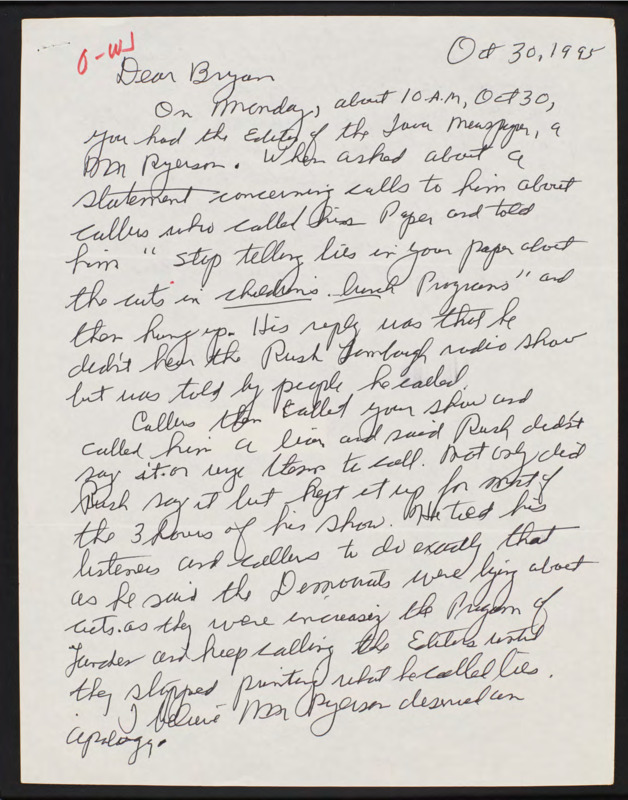 O-WJ
Oct 30, 1995
Dear Bryan
On Monday, about 10 A.M, Oct 30,
you had the Editor of the Iowa Newspaper, a
Mr Ryerson. When asked about a
statement concerning calls to him about
callers who called his Paper and told
him "stop telling lies in your paper about
the cuts in children's lunch Programs" and
then hung up. His reply was that he
didn't hear the Rush Limbaugh radio show
but was told by people he called.
Callers then called your show and
called him a liar and said Rush didn't
say it or urge them to call. Not only did
Rush say it but kept it up for most of
the 3 hours of his show. He told his
listeners and callers to do exactly that
as he said the Democrats were lying about
cuts. as they were increasing the Program of
Lunches and keep calling the Editors until
they stopped printing what he called lies.
I believe Mr Ryerson deserved an
apology.